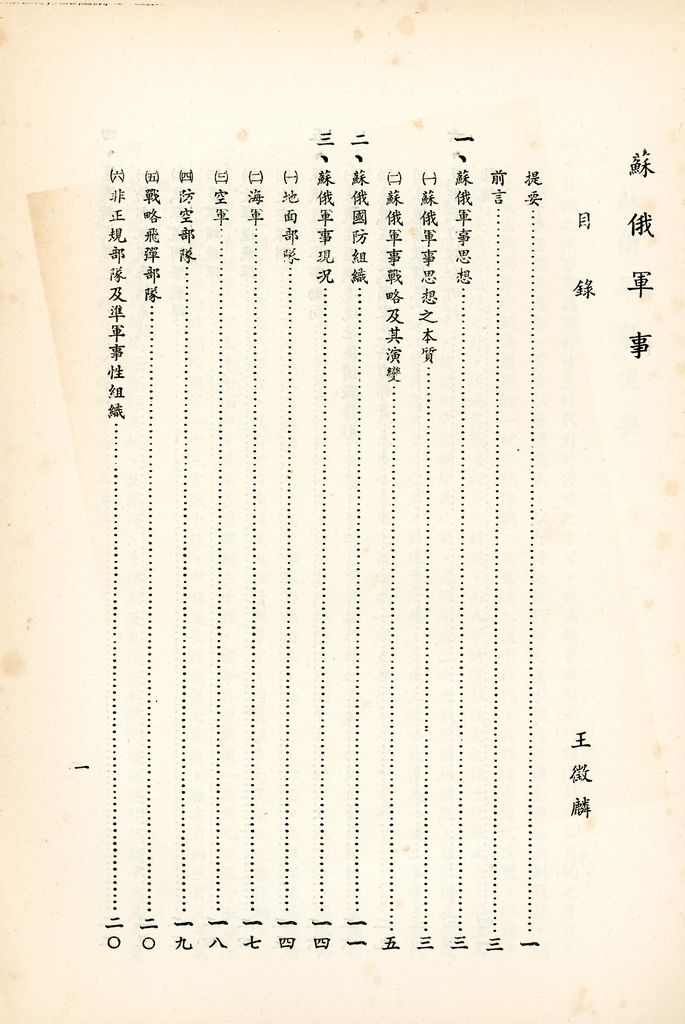 蘇俄軍事
目錄
王徵麟
提要…………一
前言…………三
一、蘇俄軍事思想…………三
㈠蘇俄軍事思想之本質…………三
㈡蘇俄軍事戰略及其演變…………五
二、蘇俄國防組織…………一一
三、蘇俄軍事現況…………一四
㈠地面部隊…………一四
㈡海軍…………一七
㈢空軍…………一八
㈣防空部隊…………一九
㈤戰略飛彈部隊…………二〇
㈥非正規部隊及準軍事性組織…………二〇
一